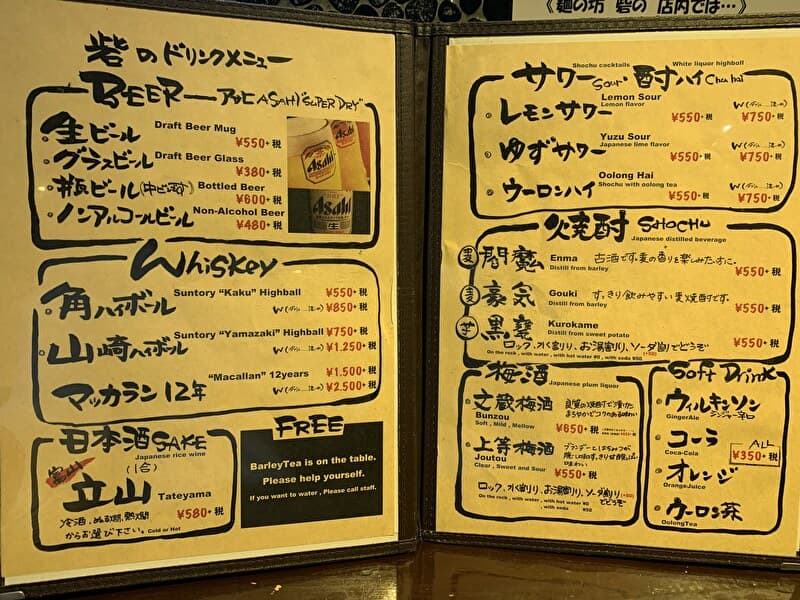 《麺の坊 砦の 店内では…》
砦のドリンクメニュー
BEER — アサヒ ASAHI "SUPER DRY"
生ビール Draft Beer Mug
¥550+税
グラスビール Draft Beer Glass
¥380+税
Bottled Beer
¥600+税
ノンアルコールビール Non-Alcohol Beer
¥480+税
Asahi
Asahi
Asahi
生
Whiskey
角ハイボール Suntory "Kaku" Highball ¥550+税
¥850+税
山崎ハイボール Suntory "Yamazaki" Highball ¥750+税
¥1.250+税
マッカラン12年 "Macallan" 12years ¥1.500+税
¥2.500+税
日本酒 SAKE
Japanese rice wine
(1合)
富山
立山 Tateyama
¥580+税
冷酒、ぬる燗、熱燗
からお選び下さい。Cold or Hot
FREE
BarleyTea is on the table.
Please help yourself.
If you want to water , Please call staff.
Shochu cocktails White liquor highball
サワー Sour・酎ハイ Chu hai
レモンサワー Lemon Sour
Lemon flavor
¥550+税 ¥750+税
ゆずサワー Yuzu Sour
Japanese lime flavor
¥550+税 ¥750+税
ウーロンハイ Oolong Hai
Shochu with oolong tea
¥550+税 ¥750+税
焼酎 SHOCHU
Japanese distilled beverage
麦 閻魔 Enma 古酒です。麦の香りを楽しみたい方に。
Distill from barley
¥550+税
麦 豪気 Gouki すっきり飲みやすい麦焼酎です。
Distill from barley
¥550+税
芋 黒甕 Kurokame
Distill from sweet potato
¥550+税
ロック、水割り、お湯割り、ソーダ割りでどうぞ (+50)
On the rock , with water , with hot water ¥0 , with soda ¥50
梅酒 Japanese plum liquor
文蔵梅酒
Bunzou
Soft , Mild , Mellow
¥650+税
上等梅酒
Joutou
Clear , Sweet and Sour
¥550+税
ロック、水割り、お湯割り、ソーダ割り (+50)
でどうぞ
On the rock , with water , with hot water ¥0
, with soda ¥50
Soft Drink
ウィルキンソン
GingerAle ジンジャー辛口
コーラ
Coca-Cola
ALL
¥350+税
オレンジ
OrangeJuice
ウーロン茶
OolongTea